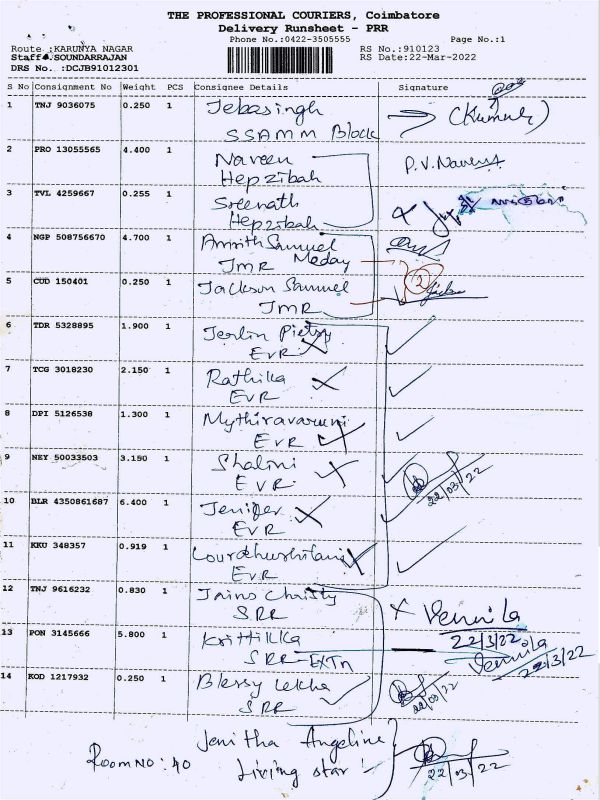 THE PROFESSIONAL COURIERS, Coimbatore
Delivery Runsheet - PRR
Phone No.:0422-3505555 Page No.:1
Route :KARUNYA NAGAR RS No.:910123
Staff :SOUNDARRAJAN RS Date:22-Mar-2022
DRS No. :DCJB91012301
S No Consignment No Weight PCS Consignee Details Signature
1 TNJ 9036075 0.250 1 Jebasingh
SSAMM Block (Kumar)
2 PRO 13055565 4.400 1 Naveen
Hepzibah P.V.Naveen
3 TVL 4259667 0.255 1 Sreenath
Hepzibah
4 NGP 508756670 4.700 1 Amrith Samuel
JMR Meday
5 CUD 150401 0.250 1 Jackson Samuel 2
JMR
6 TDR 5328895 1.900 1 Jerlin
EVR
7 TCG 3018230 2.150 1 Rathika
EVR
8 DPI 5126538 1.300 1
EVR
9 NEY 50033503 3.150 1 Shalini
EVR 22/03/22
10 BLR 4350861687 6.400 1 Jenifer
EVR
11 KKU 348357 0.919 1
EVR
12 TNJ 9616232 0.830 1 Jains Christy
SRR Vennila
22/3/22
13 PON 3145666 5.800 1 Krittikka
SRR EXTn Vennila
22/3/22
14 KOD 1217932 0.250 1 Blessy Lekha
SRR 22/03/22
Jenitha Angeline
Room NO: 40 Living star
22/03/22